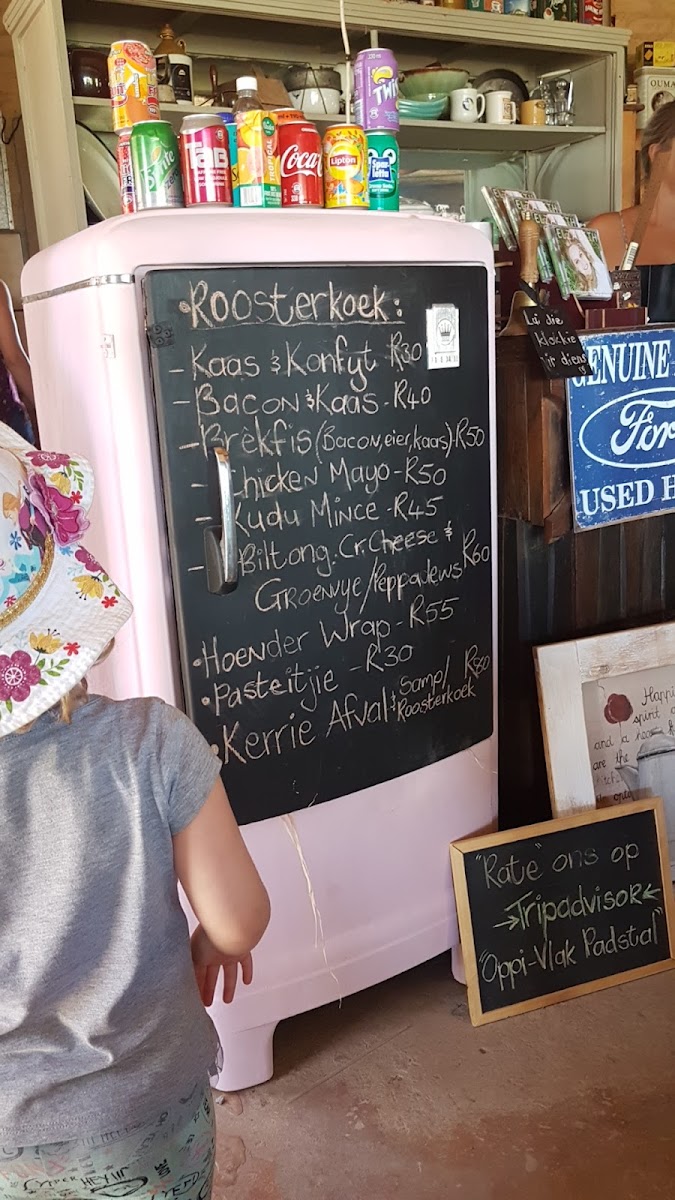 Fanta
TWIST
Sprite
TaB
TROPICAL
Coca
Lipton
Spar-letta
OUMA
• Roosterkoek:
- Kaas & Konfyt R30
- Bacon & Kaas - R40
- Brèkfis (Bacon, eier, kaas) - R50
- Chicken Mayo - R50
- Kudu Mince - R45
- Biltong. Cr. Cheese &
Groenvye/Peppadews R60
• Hoender Wrap - R55
• Pasteitjie - R30
• Kerrie Afval & Samp/ R80
Roosterkoek
klokkie
GENUINE
Ford
USED
Happi
spirit
and a
are the
"Rate" ons op
Tripadvisor
"Oppi-Vlak Padstal"